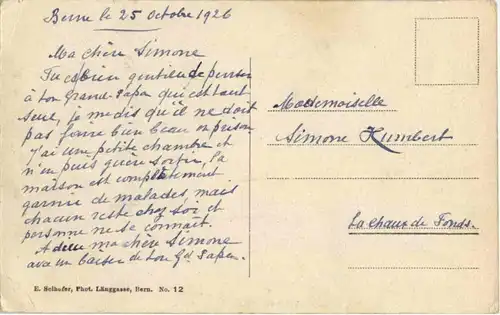 Berne le 25 Octobre 1926
Ma chère Simone
Tu es bien gentille de penser
à ton Grand-Papa qui est tout
seul, je me dis qu'il ne doit
pas faire bien beau en prison
J'ai une petite chambre et
n'en puis guère sortir, la
maison est complètement
garnie de malades mais
chacun reste chez soi et
personne ne se connaît.
Adieu ma chère Simone
avec un baiser de ton Gd Papa.
E. Selhofer, Phot. Länggasse, Bern. No. 12
Mademoiselle
Simone Humbert
La Chaux de Fonds.